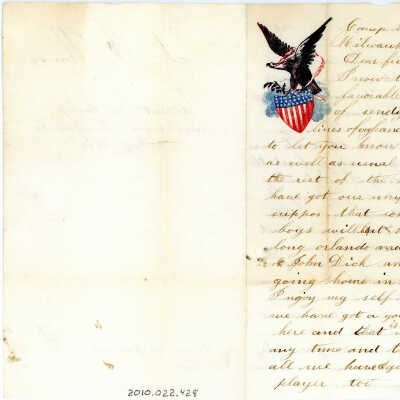 Camp
Milwauk
Dear frie
I now t
favorable
of sendi
lines of
to let you know
as well as usual
the rest of the
have got our
suppos that
boys will
long orlando
to John Dick an
going home in
I njoy my self
we have got a yo
here and that is
any time and t
all we have
player too
2010.022.428